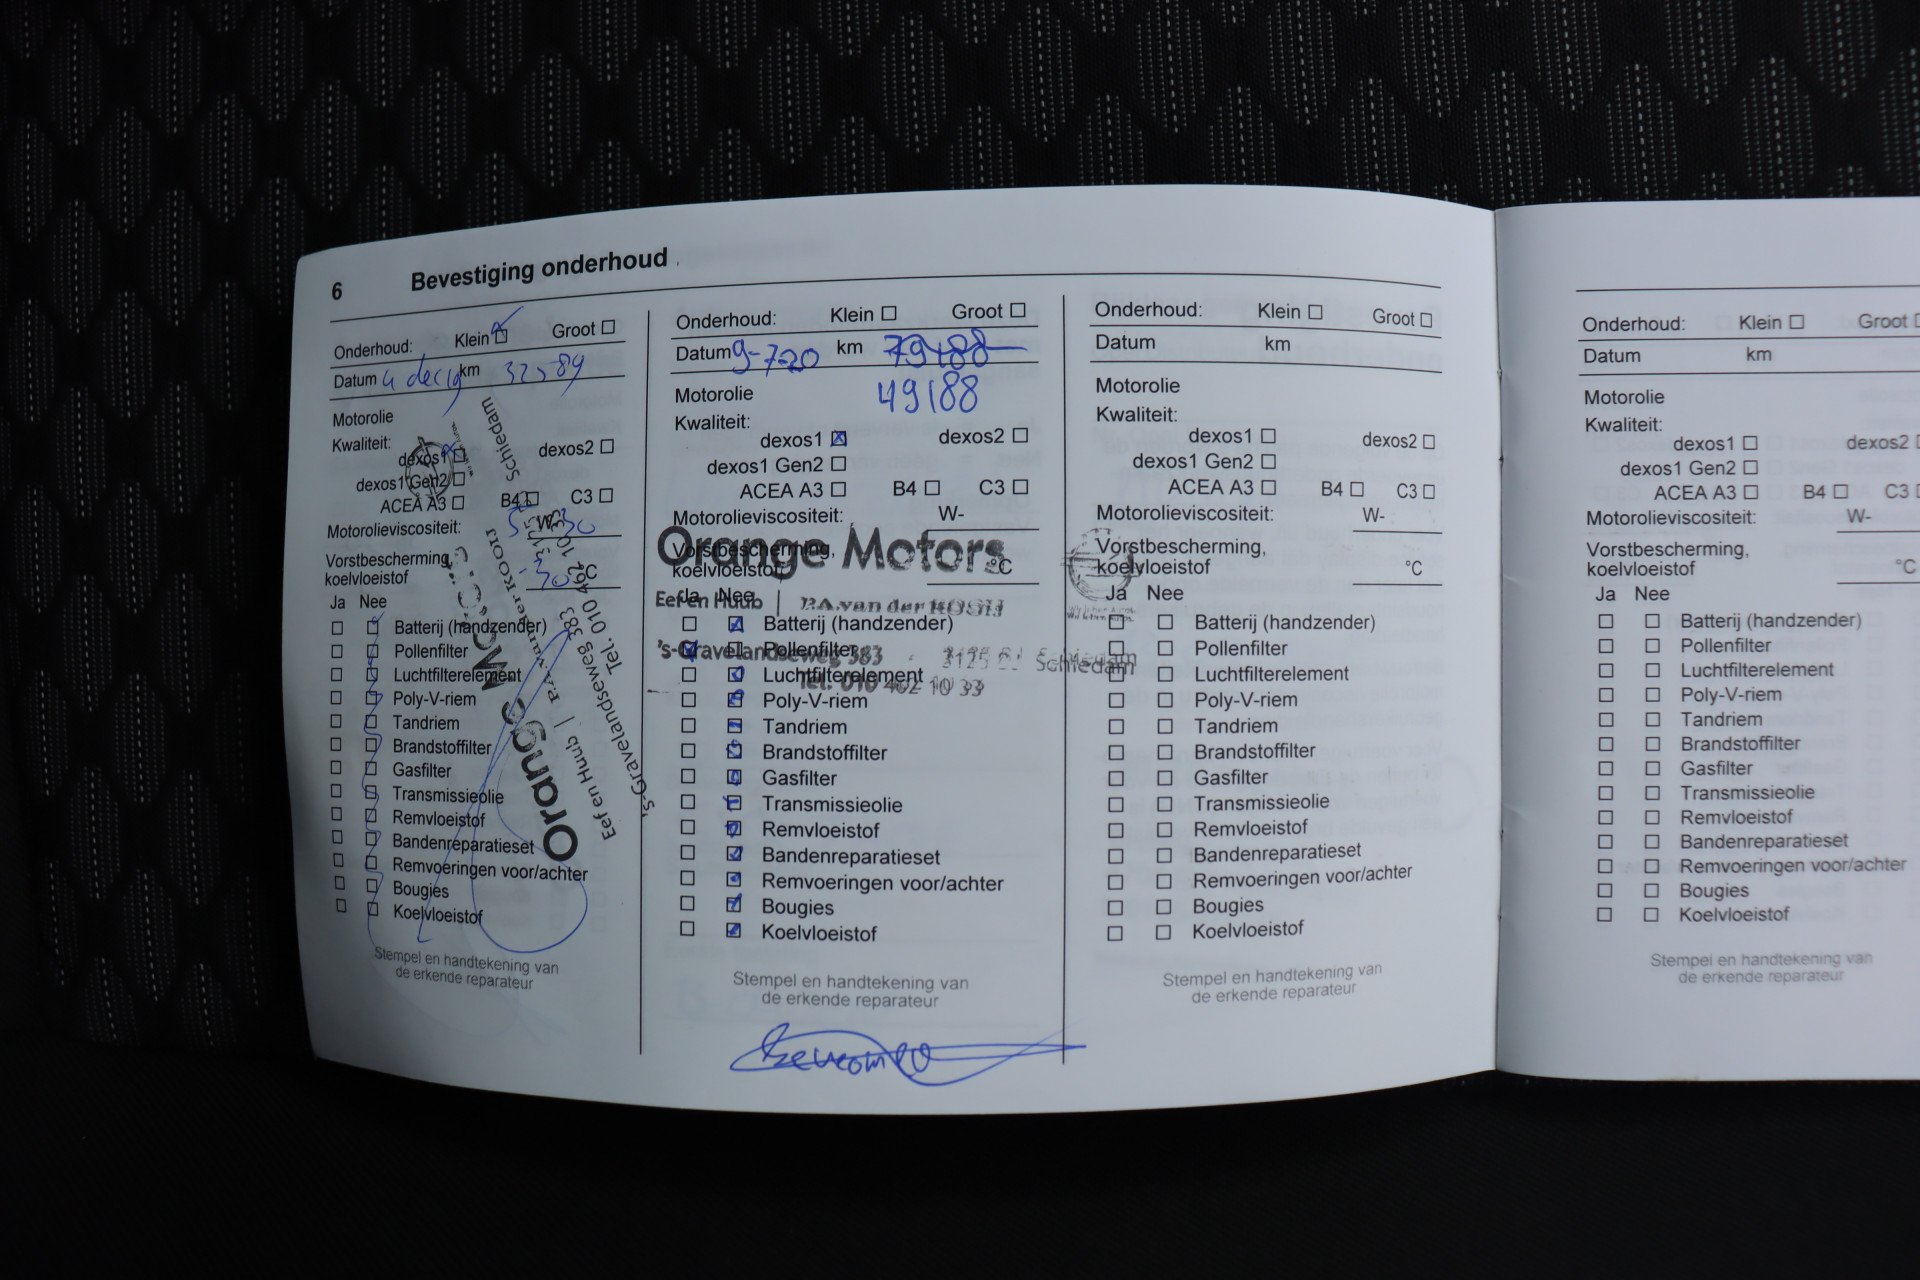 6 Bevestiging onderhoud
Onderhoud: Klein Groot
Datum 4 dec 19 km
Motorolie
Kwaliteit:
dexos1 dexos2
dexos1 Gen2
ACEA A3 B4 C3
Motorolieviscositeit: 5 W- 30
Vorstbescherming,
koelvloeistof -30 °C
Ja Nee
Batterij (handzender)
Pollenfilter
Luchtfilterelement
Poly-V-riem
Tandriem
Brandstoffilter
Gasfilter
Transmissieolie
Remvloeistof
Bandenreparatieset
Remvoeringen voor/achter
Bougies
Koelvloeistof
Stempel en handtekening van
de erkende reparateur
Orange Motors
Eef en Huub | P.A. van der KOOIJ
's-Gravelandseweg 383 Schiedam
Tel. 010 462 10 33
Onderhoud: Klein Groot
Datum 9-7-20 km 79188
Motorolie 49188
Kwaliteit:
dexos1 dexos2
dexos1 Gen2
ACEA A3 B4 C3
Motorolieviscositeit: W-
Vorstbescherming,
koelvloeistof °C
Ja Nee
Batterij (handzender)
Pollenfilter
Luchtfilterelement
Poly-V-riem
Tandriem
Brandstoffilter
Gasfilter
Transmissieolie
Remvloeistof
Bandenreparatieset
Remvoeringen voor/achter
Bougies
Koelvloeistof
Stempel en handtekening van
de erkende reparateur
Orange Motors
Eef en Huub | P.A. van der KOOIJ
's-Gravelandseweg 383 3125 BJ Schiedam
Tel. 010 462 10 33
Onderhoud: Klein Groot
Datum km
Motorolie
Kwaliteit:
dexos1 dexos2
dexos1 Gen2
ACEA A3 B4 C3
Motorolieviscositeit: W-
Vorstbescherming,
koelvloeistof °C
Ja Nee
Batterij (handzender)
Pollenfilter
Luchtfilterelement
Poly-V-riem
Tandriem
Brandstoffilter
Gasfilter
Transmissieolie
Remvloeistof
Bandenreparatieset
Remvoeringen voor/achter
Bougies
Koelvloeistof
Stempel en handtekening van
de erkende reparateur
Onderhoud: Klein Groot
Datum km
Motorolie
Kwaliteit:
dexos1 dexos2
dexos1 Gen2
ACEA A3 B4 C3
Motorolieviscositeit: W-
Vorstbescherming,
koelvloeistof °C
Ja Nee
Batterij (handzender)
Pollenfilter
Luchtfilterelement
Poly-V-riem
Tandriem
Brandstoffilter
Gasfilter
Transmissieolie
Remvloeistof
Bandenreparatieset
Remvoeringen voor/achter
Bougies
Koelvloeistof
Stempel en handtekening van
de erkende reparateur